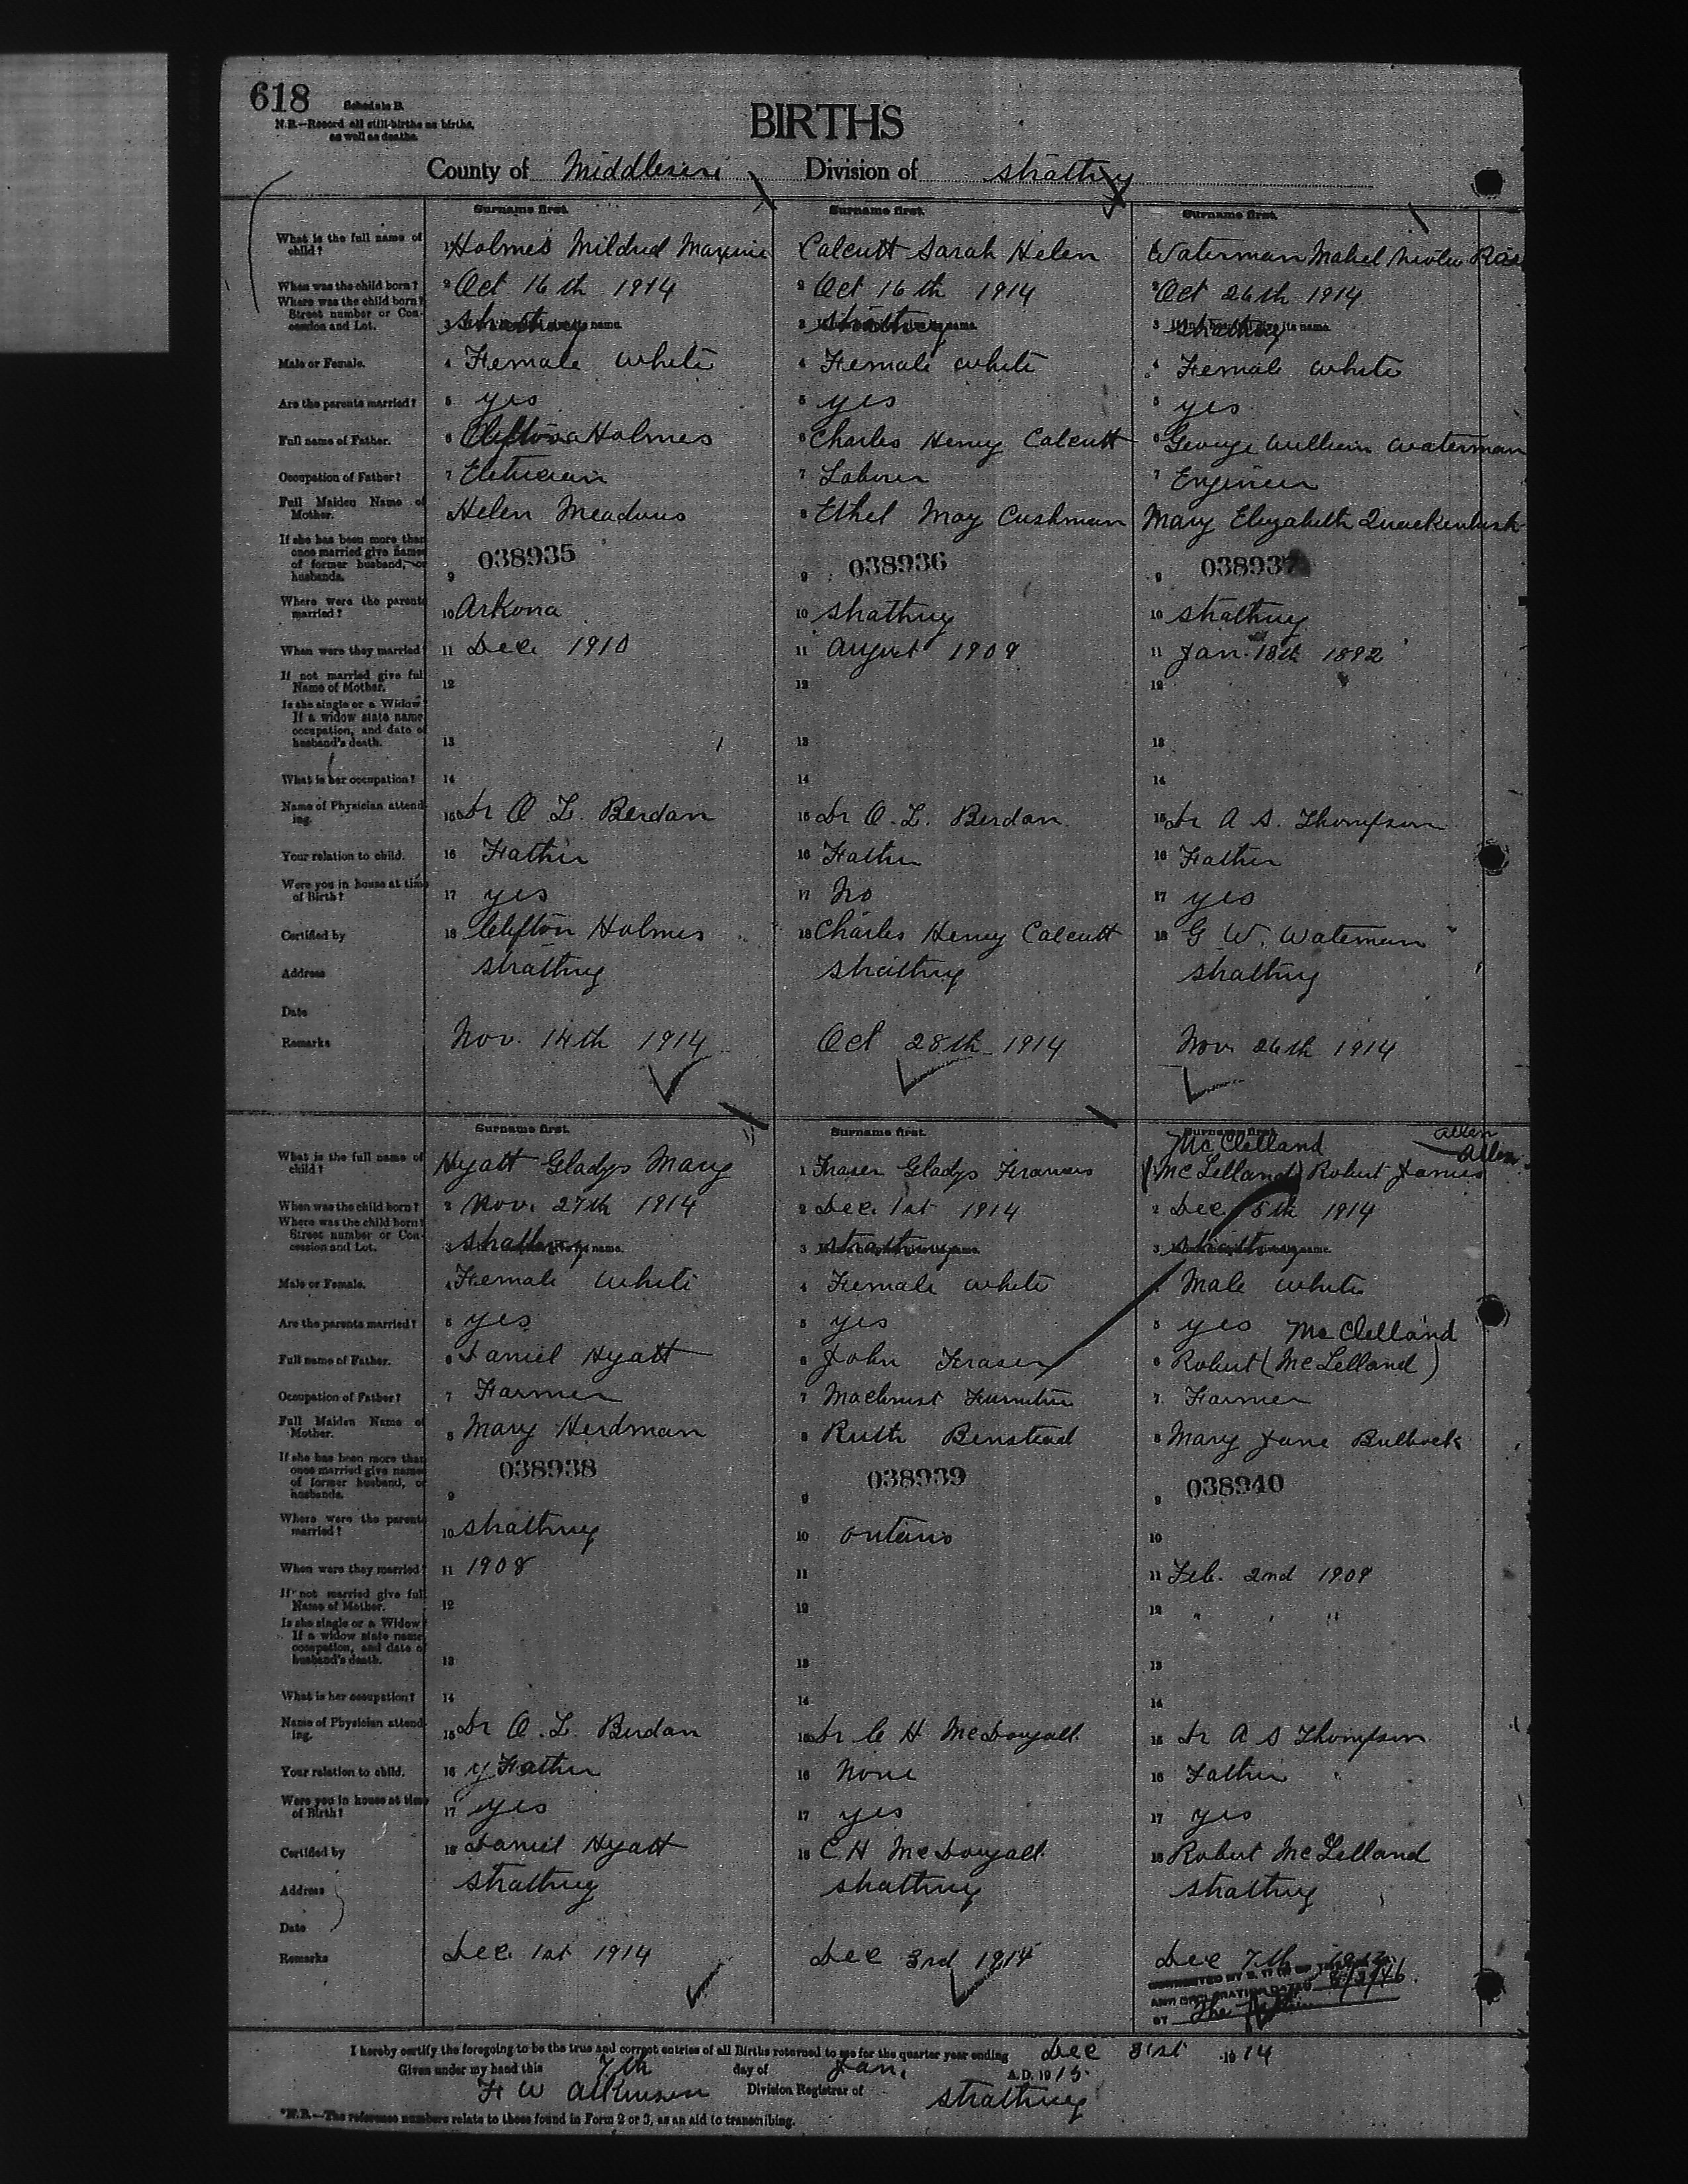 618
Schedule B.
N.B.—Record all still-births as births, as well as deaths.
BIRTHS
County of Middlesex Division of Strathroy
Surname first. Surname first. Surname first.
What is the full name of child? 1 Holmes Mildred Calcutt Sarah Helen Waterman Mabel
When was the child born? 2 Oct 16th 1914 2 Oct 16th 1914 2 Oct 26th 1914
Where was the child born? Street number or Concession and Lot. 3 Strathroy 3 Strathroy 3 Strathroy
Male or Female. 4 Female white 4 Female white 4 Female white
Are the parents married? 5 yes 5 yes 5 yes
Full name of Father. 6 Clifton Holmes 6 Charles Henry Calcutt 6 George William Waterman
Occupation of Father? 7 Eletrician 7 Labourer 7 Engineer
Full Maiden Name of Mother. 8 Helen Meadows 8 Ethel May Cushman Mary Elizabeth Quackenbush
If she has been more than once married give names of former husband, or husbands. 9 038935 9 038936 9 038937
Where were the parents married? 10 Arkona 10 Strathroy 10 Strathroy
When were they married? 11 Dec. 1910 11 August 1909 11 Jan. 18th 1892
If not married give full Name of Mother. 12 12 12
Is she single or a Widow? If a widow state name, occupation, and date of husband's death. 13 13 13
What is her occupation? 14 14 14
Name of Physician attending. 15 Dr O. L. Berdan 15 Dr O. L. Berdan 15 Dr A S. Thompson
Your relation to child. 16 Father 16 Father 16 Father
Were you in house at time of Birth? 17 yes 17 No 17 yes
Certified by 18 Clifton Holmes 18 Charles Henry Calcutt 18 G W. Waterman
Address Strathroy Strathroy Strathroy
Date
Remarks Nov. 14th 1914 Oct 28th 1914 Nov. 26th 1914
Surname first. Surname first. Surname first.
McClelland Allen
What is the full name of child? Hyatt Gladys Mary 1 Fraser Gladys Frances 1 (McLelland) Robert James Allen
When was the child born? 2 Nov. 27th 1914 2 Dec. 1st 1914 2 Dec. 5th 1914
Where was the child born? Street number or Concession and Lot. 3 Strathroy 3 Strathroy 3 Strathroy
Male or Female. 4 Female white 4 Female white Male white
Are the parents married? 5 yes 5 yes 5 yes McClelland
Full name of Father. 6 Daniel Hyatt 6 John Fraser 6 Robert (McLelland)
Occupation of Father? 7 Farmer 7 Machinist Furniture 7. Farmer
Full Maiden Name of Mother. 8 Mary Herdman 8 Ruth Benstead 8 Mary Jane Bulbock
If she has been more than once married give names of former husband, or husbands. 9 038938 9 038939 9 038940
Where were the parents married? 10 Strathroy 10 Ontario 10
When were they married? 11 1908 11 11 Feb. 2nd 1909
If not married give full Name of Mother. 12 12 12 " " "
Is she single or a Widow? If a widow state name, occupation, and date of husband's death. 13 13 13
What is her occupation? 14 14 14
Name of Physician attending. 15 Dr O. L. Berdan 15 Dr C H McDougall 15 Dr A S Thompson
Your relation to child. 16 Father 16 None 16 Father
Were you in house at time of Birth? 17 yes 17 yes 17 yes
Certified by 18 Daniel Hyatt 18 C H McDougall 18 Robert McLelland
Address Strathroy Strathroy Strathroy
Date
Remarks Dec. 1st 1914 Dec 3rd 1914 Dec 7th
I hereby certify the foregoing to be the true and correct entries of all Births returned to me for the quarter year ending Dec 31st 1914
Given under my hand this 7th day of Jan. A.D. 1915.
F W Atkinson Division Registrar of Strathroy
*N.B.—The reference numbers relate to those found in Form 2 or 3, as an aid to transcribing.